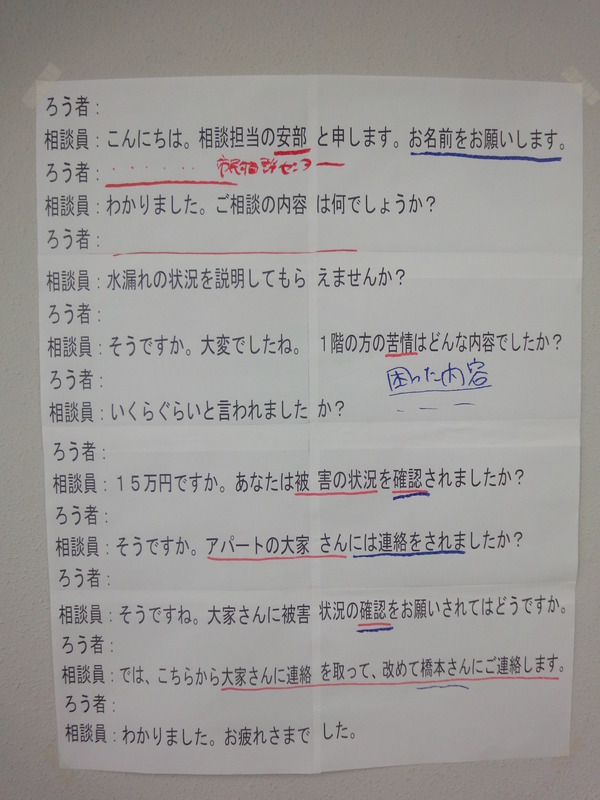 ろう者：
相談員：こんにちは。相談担当の安部と申します。お名前をお願いします。
ろう者：
相談員：わかりました。ご相談の内容は何でしょうか？
ろう者：
相談員：水漏れの状況を説明してもらえませんか？
ろう者：
相談員：そうですか。大変でしたね。１階の方の苦情はどんな内容でしたか？
ろう者：
困った内容
相談員：いくらぐらいと言われましたか？
ろう者：
相談員：１５万円ですか。あなたは被害の状況を確認されましたか？
ろう者：
相談員：そうですか。アパートの大家さんには連絡をされましたか？
ろう者：
相談員：そうですね。大家さんに被害状況の確認をお願いされてはどうですか。
ろう者：
相談員：では、こちらから大家さんに連絡を取って、改めて橋本さんにご連絡します。
ろう者：
相談員：わかりました。お疲れさまでした。